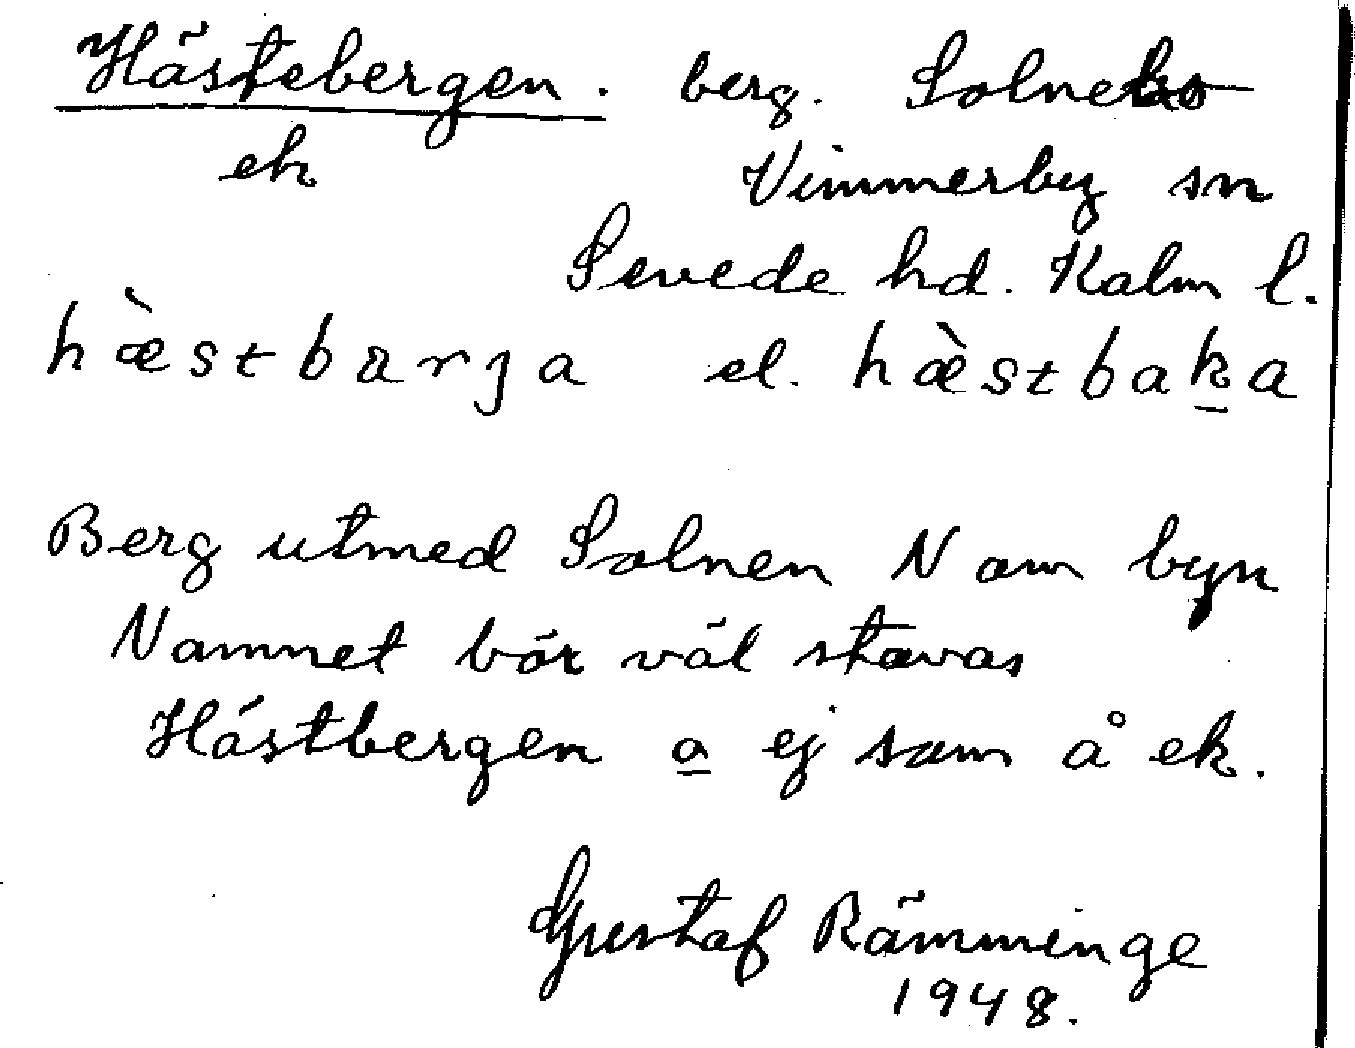 Hästebergen. berg. Solnebo
ek Vimmerby sn
Sevede hd. Kalm l.
hæ̀stbarja el. hæ̀stbaka
Berg utmed Solnen N om byn
Namnet bör väl stavas
Hästbergen o ej som å ek.
Gustaf Rämminge
1948.